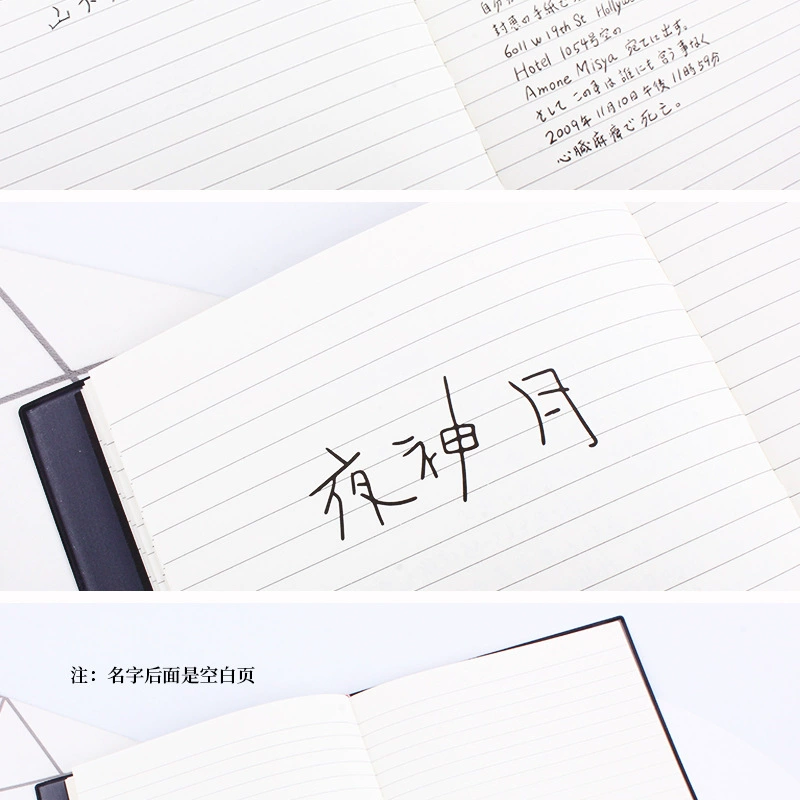 封悪の手紙で
6011 W 19th St Hollyw
Hotel 1054号室の
Amone Misya 宛てに出す。
そして この事は 誰にも 言う 事なく
2009年 11月10日 午後 11時59分
心臓麻痺で 死亡。
夜神 月
注：名字后面是空白页